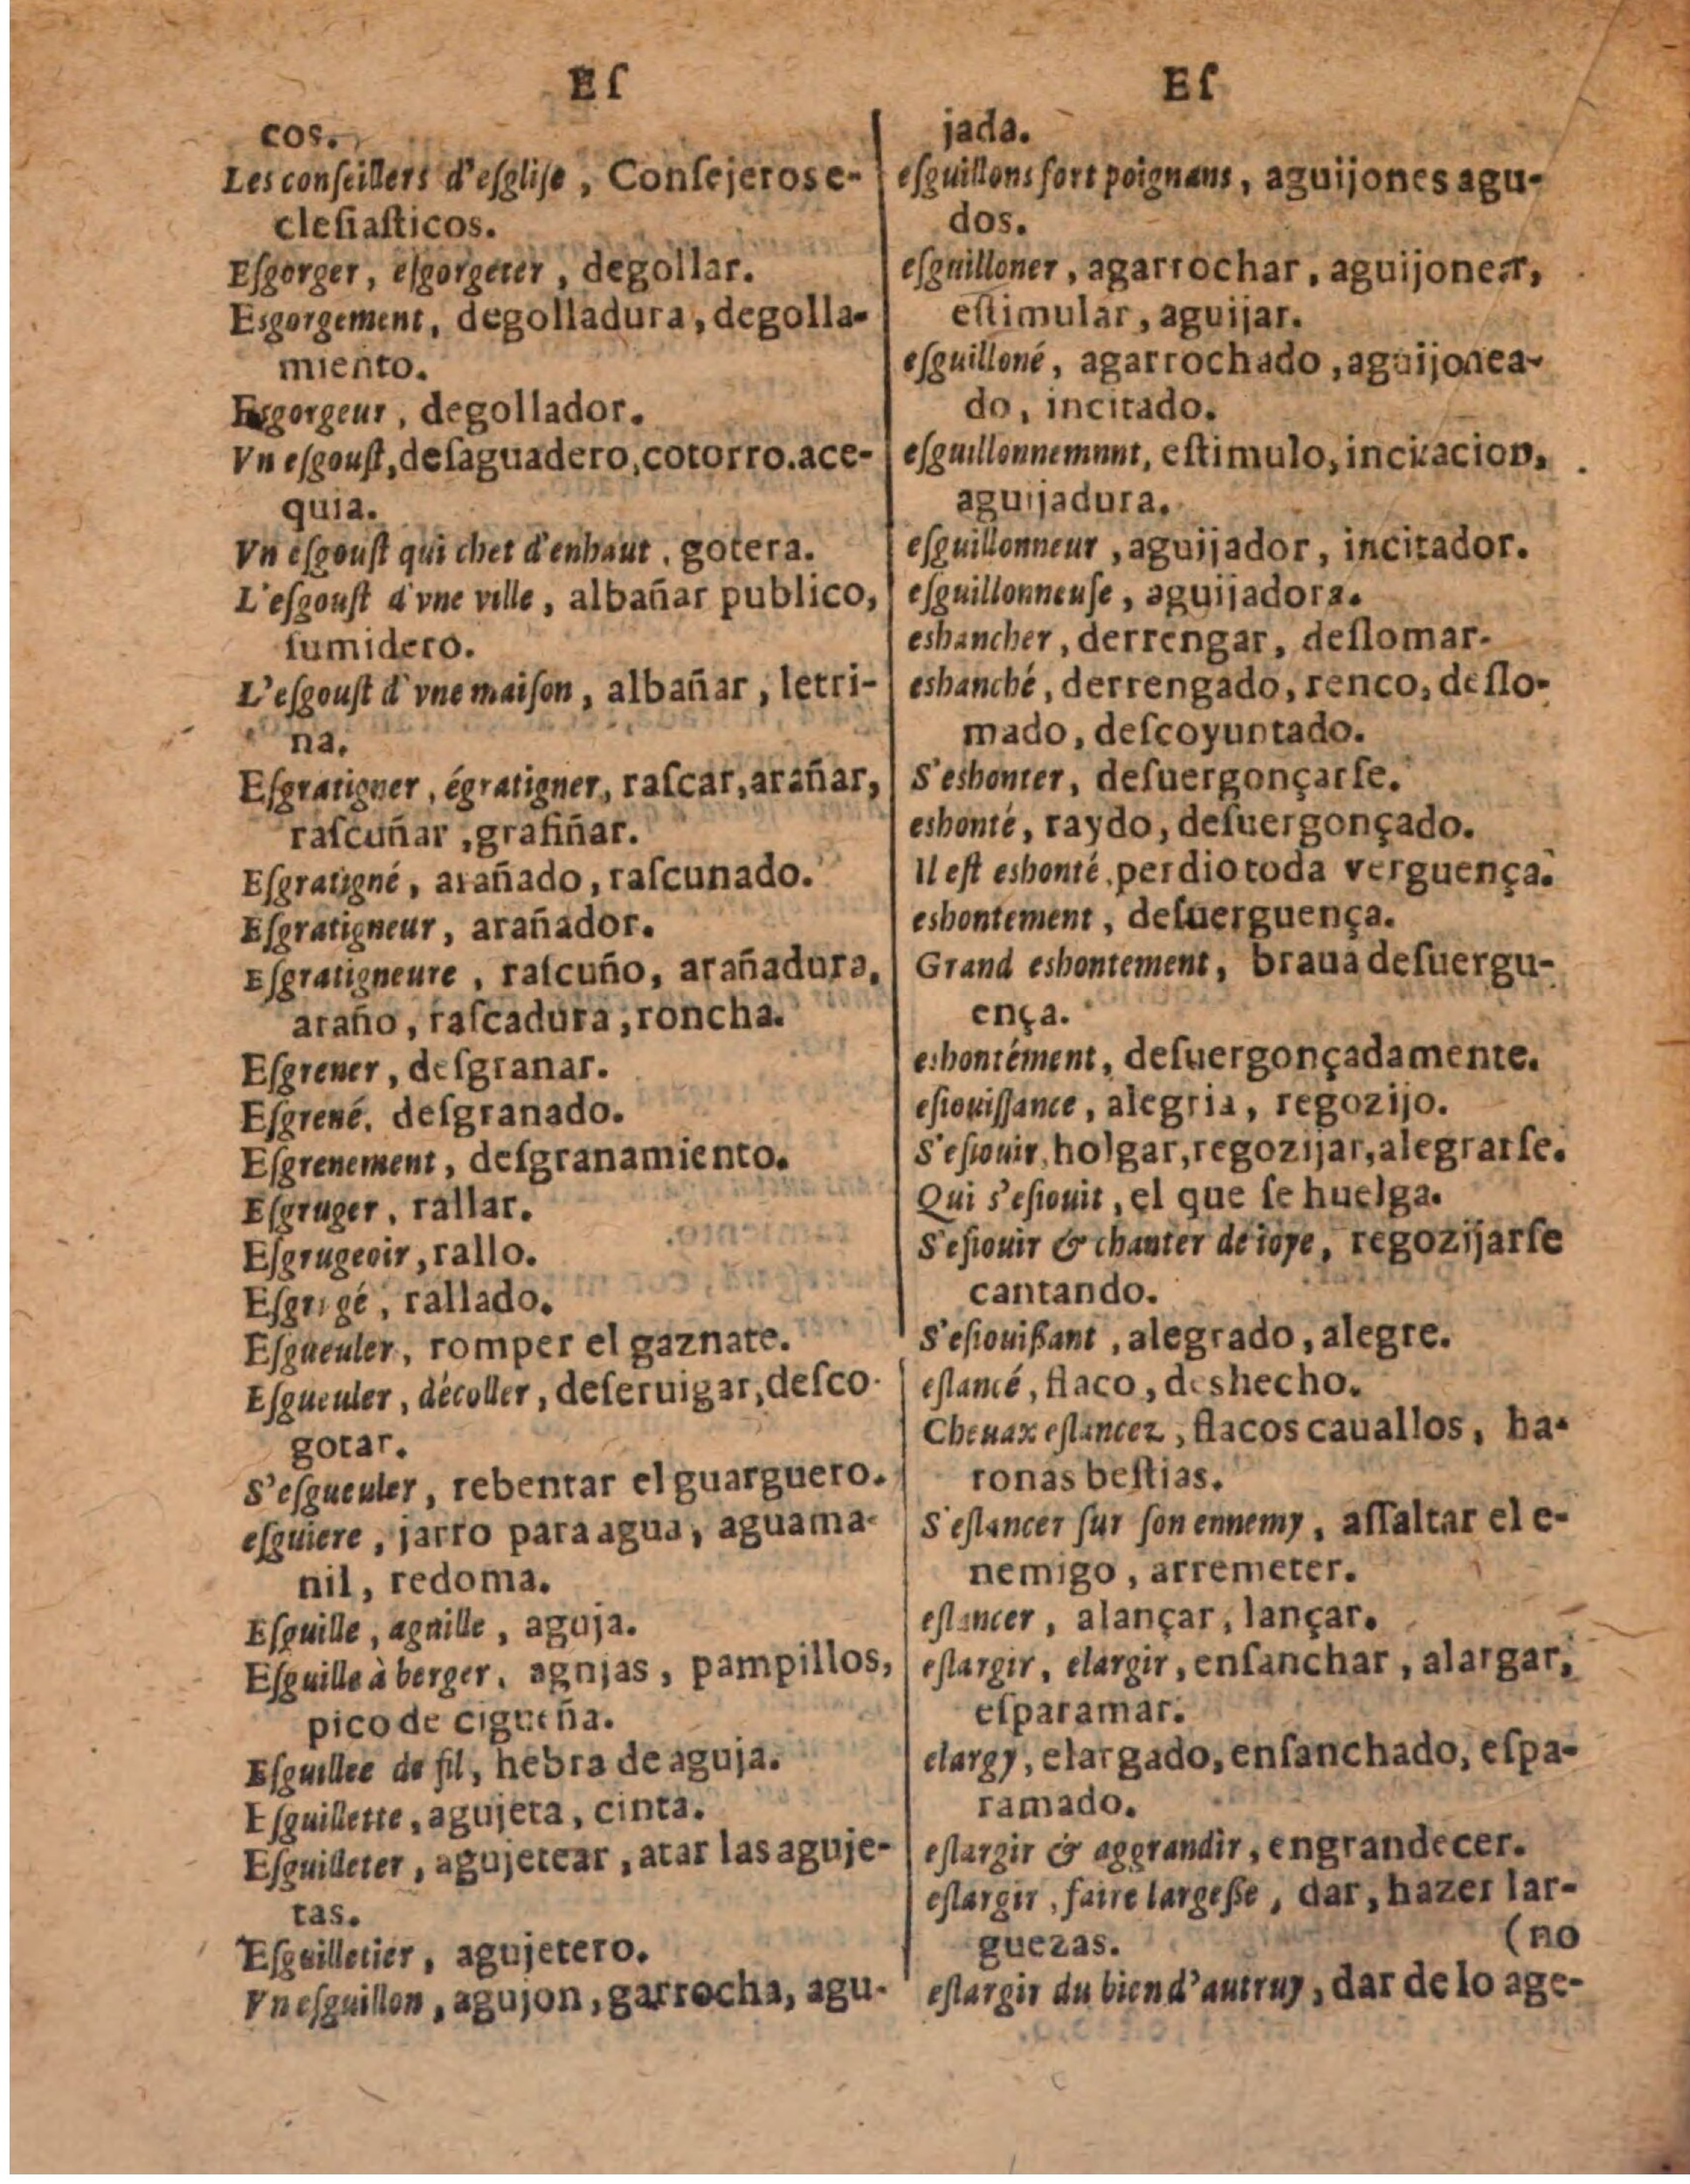 Eſ
cos.
Les conſeillers d'eſgliſe, Conſejeros e-
cleſiaſticos.
Eſgorger, eſgorgeter, degollar.
Esgorgement, degolladura, degolla-
miento.
Esgorgeur, degollador.
Vn eſgouſt, deſaguadero, cotorro. ace-
quia.
Vn eſgouſt qui chet d'enhaut, gotera.
L'eſgouſt d'vne ville, albañar publico,
ſumidero.
L'eſgouſt d'vne maiſon, albañar, letri-
na.
Eſgratigner, égratigner, raſcar, arañar,
raſcuñar, grafiñar.
Eſgratigné, arañado, raſcunado.
Eſgratigneur, arañador.
Eſgratigneure, raſcuño, arañadura,
araño, raſcadura, roncha.
Eſgrener, deſgranar.
Eſgrené, deſgranado.
Eſgrenement, deſgranamiento.
Eſgruger, rallar.
Eſgrugeoir, rallo.
Eſgrugé, rallado.
Eſgueuler, romper el gaznate.
Eſgueuler, décoller, deſeruigar, deſco-
gotar.
S'eſgueuler, rebentar el guarguero.
eſguiere, jarro para agua, aguama-
nil, redoma.
Eſguille, aguille, aguja.
Eſguille à berger, agnjas, pampillos,
pico de cigueña.
Eſguillee de fil, hebra de aguja.
Eſguillette, agujeta, cinta.
Eſguilleter, agujetear, atar las aguje-
tas.
Eſguilletier, agujetero.
Vn eſguillon, agujon, garrocha, agu-
Eſ
jada.
eſguillons fort poignans, aguijones agu-
dos.
eſguilloner, agarrochar, aguijonear,
eſtimular, aguijar.
eſguilloné, agarrochado, aguijonea-
do, incitado.
eſguillonnemnnt, eſtimulo, incitacion,
aguijadura.
eſguillonneur, aguijador, incitador.
eſguillonneuſe, aguijadora.
eshancher, derrengar, deſlomar.
eshanché, derrengado, renco, deſlo-
mado, deſcoyuntado.
S'eshonter, deſuergonçarſe.
eshonté, raydo, deſuergonçado.
Il eſt eshonté, perdio toda verguença.
eshontement, deſuerguença.
Grand eshontement, braua deſuergu-
ença.
eshontément, deſuergonçadamente.
eſiouiſſance, alegria, regozijo.
S'eſiouir, holgar, regozijar, alegrarſe.
Qui s'eſiouit, el que ſe huelga.
S'eſiouir & chanter de ioye, regozijarſe
cantando.
S'eſiouiſſant, alegrado, alegre.
eſlancé, flaco, deshecho.
Cheuax eſlancez, flacos cauallos, ha-
ronas beſtias.
S'eſlancer ſur ſon ennemy, aſſaltar el e-
nemigo, arremeter.
eſlancer, alançar, lançar.
eſlargir, elargir, enſanchar, alargar,
eſparamar.
elargy, elargado, enſanchado, eſpa-
ramado.
eſlargir & aggrandir, engrandecer.
eſlargir, faire largeſſe, dar, hazer lar-
guezas. (no
eſlargir du bien d'autruy, dar de lo age-